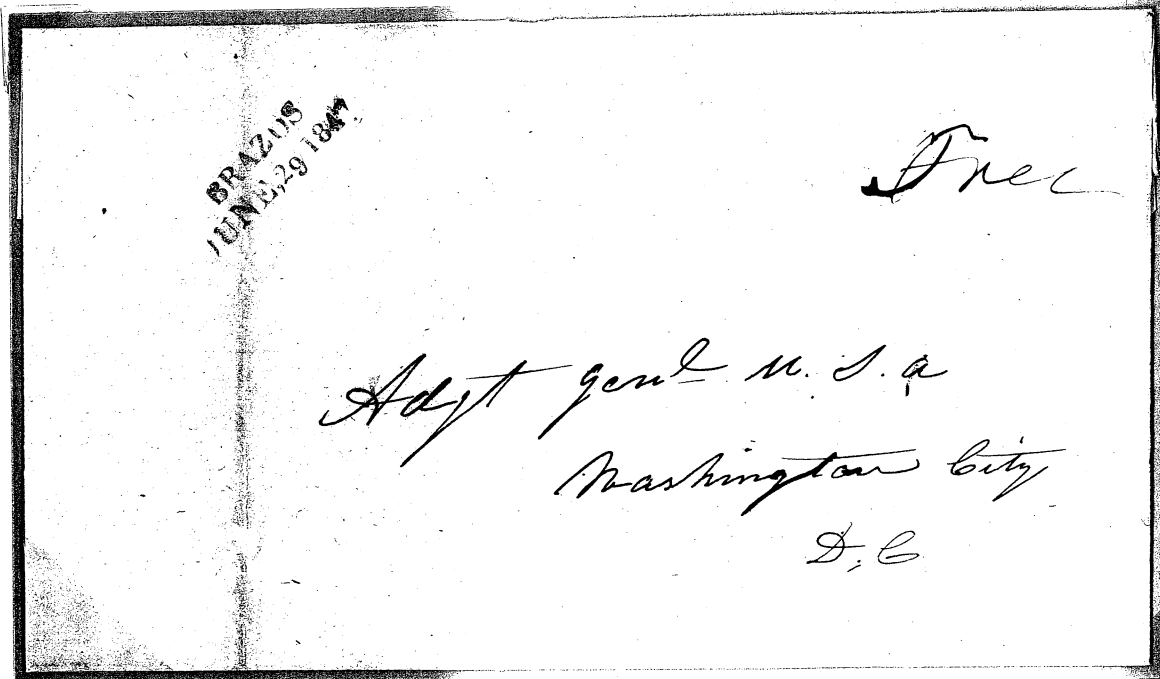 BRAZOS
JUNE, 29 1847.
Free
Adjt Genl U. S. a
Washington City
D. C